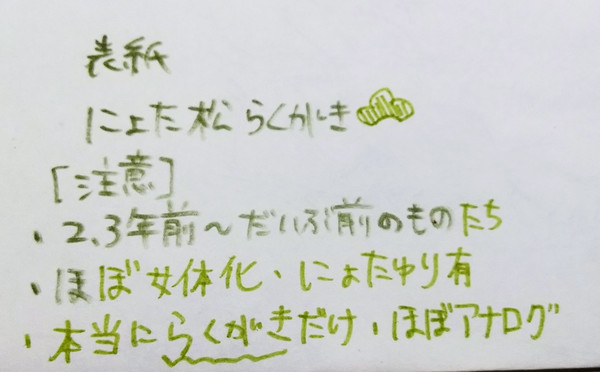 表紙
にょた松 らくがき
[注意]
・2、3年前~だいぶ前のものたち
・ほぼ女体化、にょたゆり有
・本当にらくがきだけ、ほぼアナログ